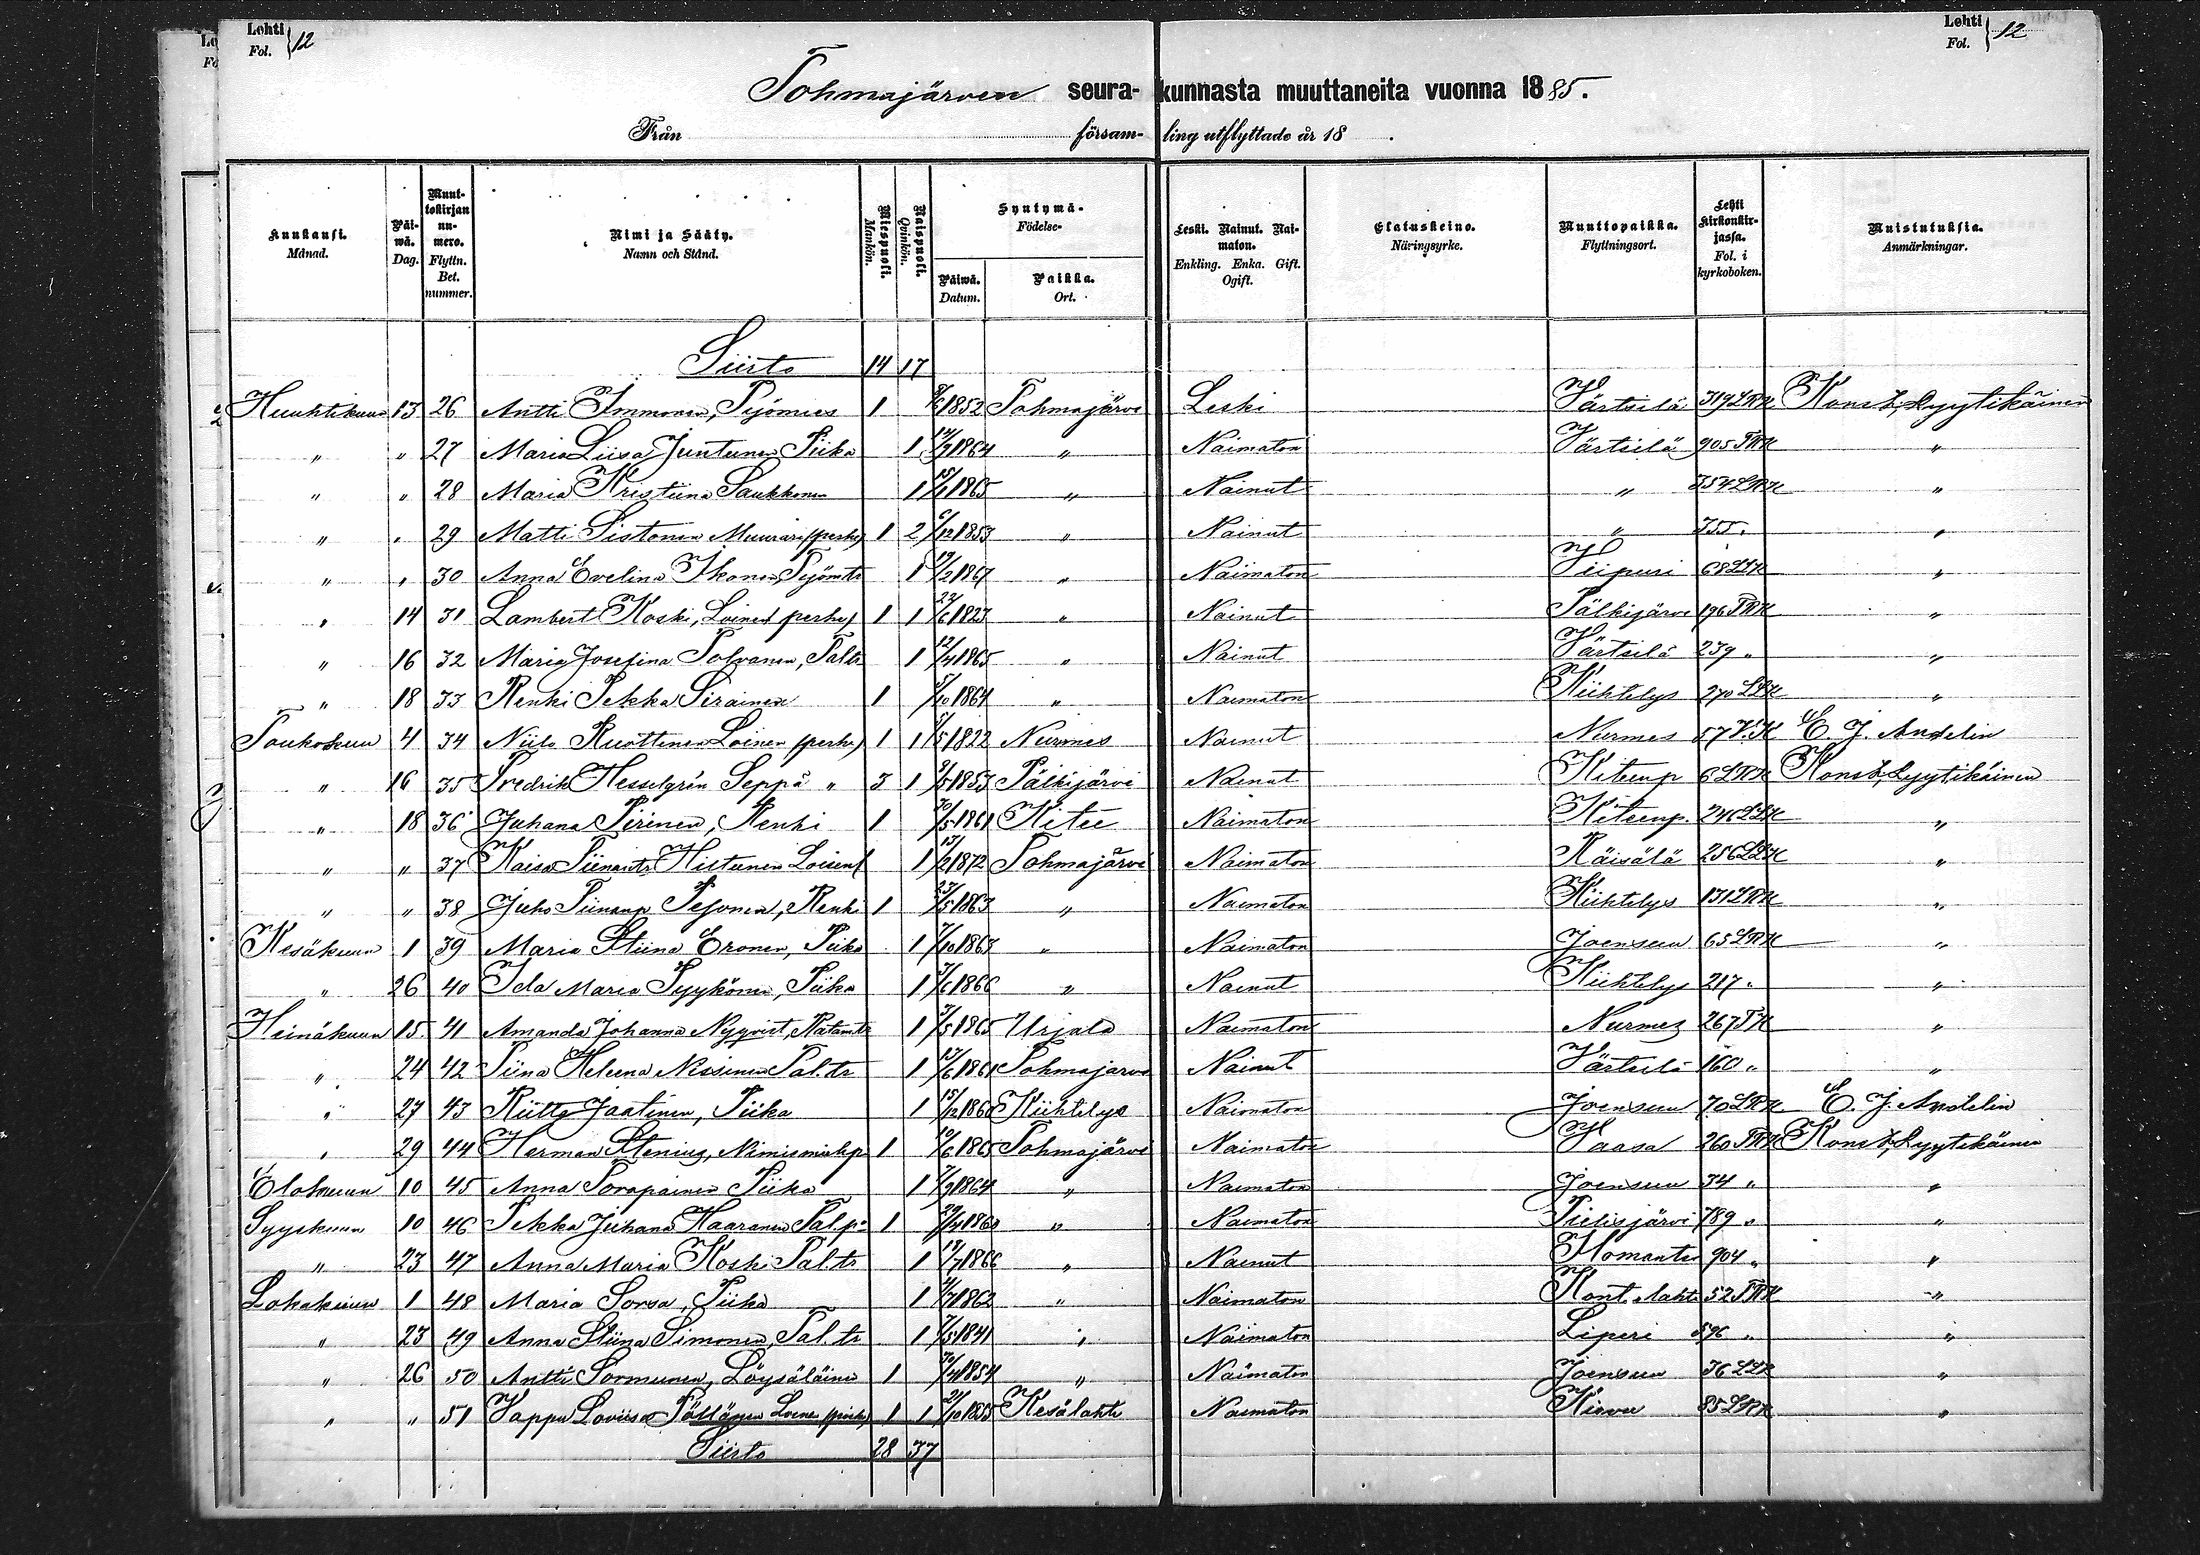 Lehti Fol. } 12
Lehti Fol. } 12
Tohmajärven seurakunnasta muuttaneita vuonna 1885.
Från församling utflyttade år 18 .
Kuukausi. Månad. | Päiwä. Dag. | Muuttokirjan numero. Flyttn. Bet. nummer. | Nimi ja Sääty. Namn och Stånd. | Miespuoli. Mankön. | Naispuoli. Qvinkön. | Syntymä- Födelse- Päiwä. Datum. | Paikka. Ort. | Leski. Nainut. Naimaton. Enkling. Enka. Gift. Ogift. | Elatuskeino. Näringsyrke. | Muuttopaikka. Flyttningsort. | Lehti kirkonkirjassa. Fol. i kyrkoboken. | Muistutuksia. Anmärkningar.
Siirto 14 17
Huuhtikuun 13 26 Antti Immonen, Työmies 1 1852 Tohmajärvi Leski Värtsilä 319 LRK Konst. Lyytikäinen
" " 27 Maria Liisa Juntunen Piika 1 1864 " Naimaton Värtsilä 905 TRK "
" " 28 Maria Kristiina Saukkonen 1 1865 " Nainut " 754 LRK "
" " 29 Matti Sistonen Muurari (perhe) 1 2 6/12 1853 " Nainut " 755 "
" " 30 Anna Evelina Ikonen, Työmtr 1 19/2 1867 " Naimaton Viipuri 68 LLK "
" 14 31 Lambert Koski, Loinen (perhe) 1 1 23/6 1823 " Nainut Pälkijärvi 196 TRK "
" 16 32 Maria Josefina Polvanen, Taltr 1 12/4 1865 " Nainut Värtsilä 239 " "
" 18 33 Renki Pekka Sirainen 1 1864 " Naimaton Kiihtelys 270 LLK "
Toukokuun 4 34 Niilo Ruottinen Loinen (perhe) 1 1 1822 Nurmes Nainut Nurmes 57 V.K E. J. Andelin
" 16 35 Fredrik Hesselgrén Seppä " 3 1 1853 Pälkijärvi Nainut Kiteenp 6 LRK Konst. Lyytikäinen
" 18 36 Juhana Pirinen, Renki 1 1861 Kitee Naimaton Kiteenp. 246 LLK "
" " 37 Kaisa Tiinantr Hiltunen Loisent 1 13/2 1872 Tohmajärvi Naimaton Räisälä 256 LLK "
" " 38 Juho Tiinanp Pesonen, Renki 1 23/5 1863 " Naimaton Kiihtelys 131 LRK "
Kesäkuun 1 39 Maria Stiina Eronen, Piika 1 7/10 1863 " Naimaton Joensuu 65 LRK "
" 26 40 Ida Maria Pyykönen, Piika 1 1866 " Nainut Kiihtelys 217 " "
Heinäkuun 15 41 Amanda Johanna Nyqvist, 1 1865 Urjala Naimaton Nurmes 267 TK "
" 24 42 Tiina Heleena Nissinen Tal.tr 1 13/6 1861 Tohmajärvi Nainut Värtsilä 160 " "
" 27 43 Riitta Jaatinen, Piika 1 15/12 1860 Kiihtelys Naimaton Joensuu 70 LRK E. J. Andelin
" 29 44 Herman Stenius, Nimismiehp 1 10/6 1865 Tohmajärvi Naimaton Vaasa 260 TRK Konst. Lyytikäinen
Elokuun 10 45 Anna Sorapainen Piika 1 7/9 1864 " Naimaton Joensuu 34 " "
Syyskuun 10 46 Pekka Juhana Haaranen Tal.p. 1 1860 " Naimaton Pielisjärvi 789 " "
" 23 47 Anna Maria Koski Tal.tr 1 13/7 1866 " Nainut Ilomantsi 904 " "
Lokakuun 1 48 Maria Sorsa, Piika 1 1862 " Naimaton Kont. lahti 52 TRK "
" 23 49 Anna Stiina Simonen, Tal.tr 1 7/5 1841 " Naimaton Liperi 596 " "
" 26 50 Antti Sormunen, Löysäläinen 1 30/4 1854 " Naimaton Joensuu 36 LLK "
" " 51 Vappu Loviisa Pällänen Loinen (perhe) 1 1 1835 Kesälahti Naimaton 85 LRK "
Siirto 28 37